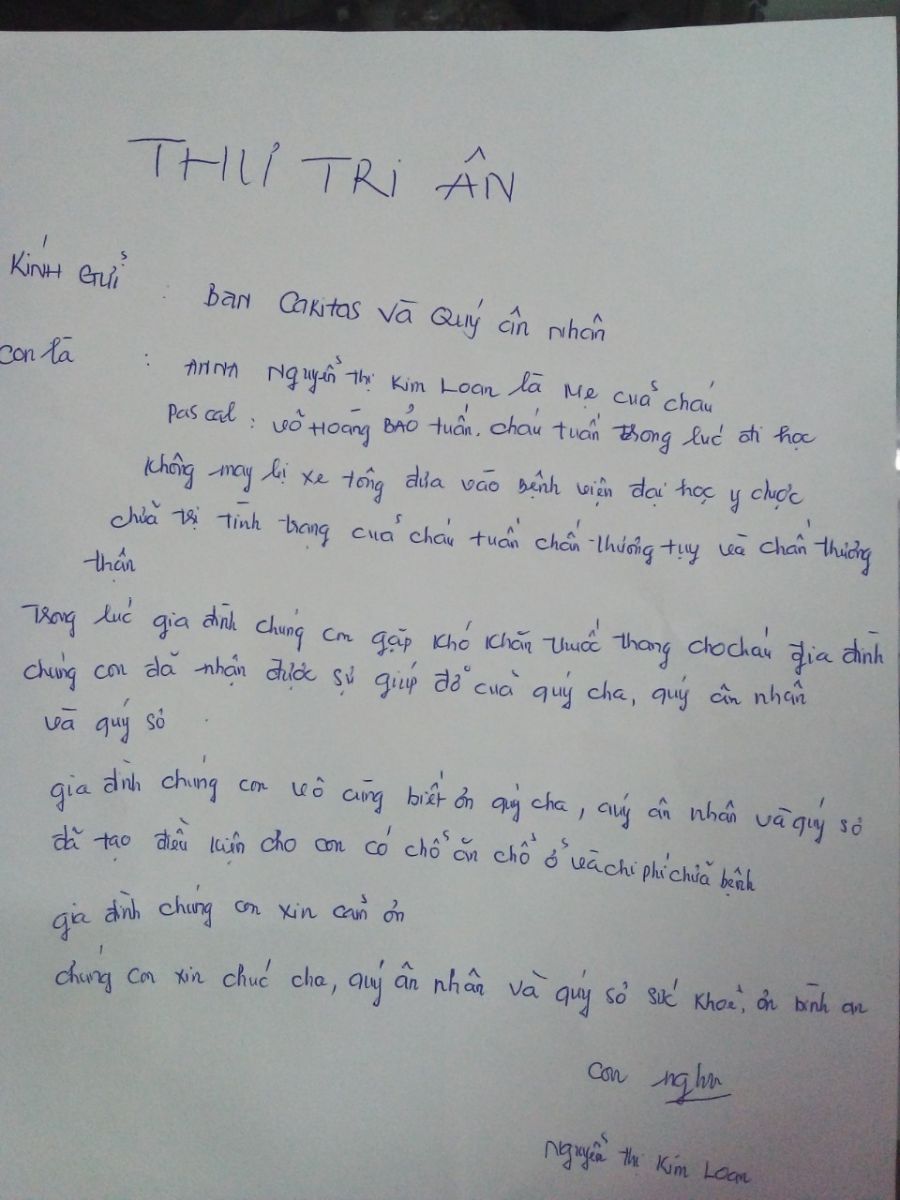 THƯ TRI ÂN
KÍNH GỬI : BAN CARITAS VÀ QUÝ ÂN NHÂN
CON LÀ : ANNA NGUYỄN THỊ KIM LOAN LÀ MẸ CUẢ CHÁU
PASCAL : VÕ HOÀNG BẢO TUẤN. CHÁU TUẤN TRONG LÚC ĐI HỌC
KHÔNG MAY BỊ XE TÔNG ĐƯA VÀO BỆNH VIỆN ĐẠI HỌC Y DƯỢC
CHỮA TRỊ TÌNH TRẠNG CUẢ CHÁU TUẤN CHẤN THƯƠNG TỤY VÀ CHẤN THƯƠNG
THẬN
Trong lúc gia đình chúng con gặp khó khăn thuốc thang cho cháu gia đình
chúng con đã nhận được sự giúp đở cuả quý cha, quý ân nhân
và quý sơ
gia đình chúng con vô cùng biết ơn quý cha, quý ân nhân và quý sơ
đã tạo điều kiện cho con có chổ ăn chổ ở và chi phí chữa bệnh
gia đình chúng con xin cảm ơn
chúng con xin chúc cha, quý ân nhân và quý sơ sức khoẻ, ơn bình an
con
Nguyễn Thị Kim Loan